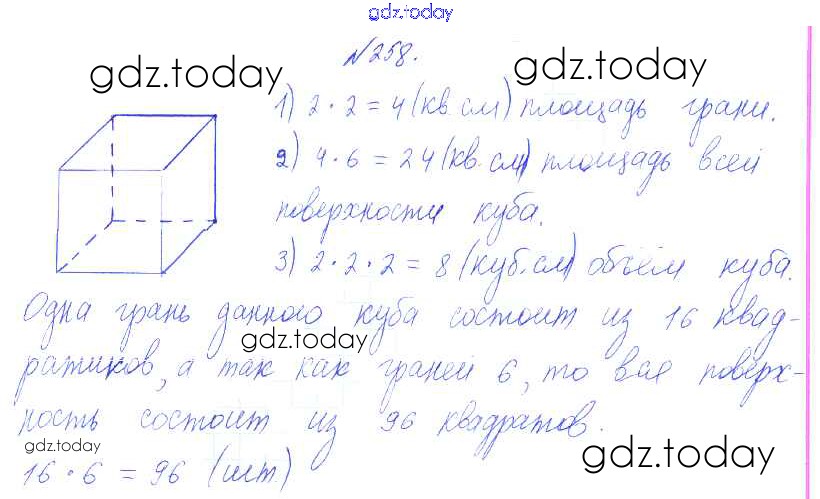 gdz.today
№258.
gdz.today gdz.today
1) 2 · 2 = 4 (кв. см) площадь грани.
2) 4 · 6 = 24 (кв. см) площадь всей
поверхности куба.
3) 2 · 2 · 2 = 8 (куб. см) объём куба.
Одна грань данного куба состоит из 16 квад-
gdz.today
ратиков, а так как граней 6, то вся поверх-
ность состоит из 96 квадратов.
gdz.today gdz.today
16 · 6 = 96 (шт.)